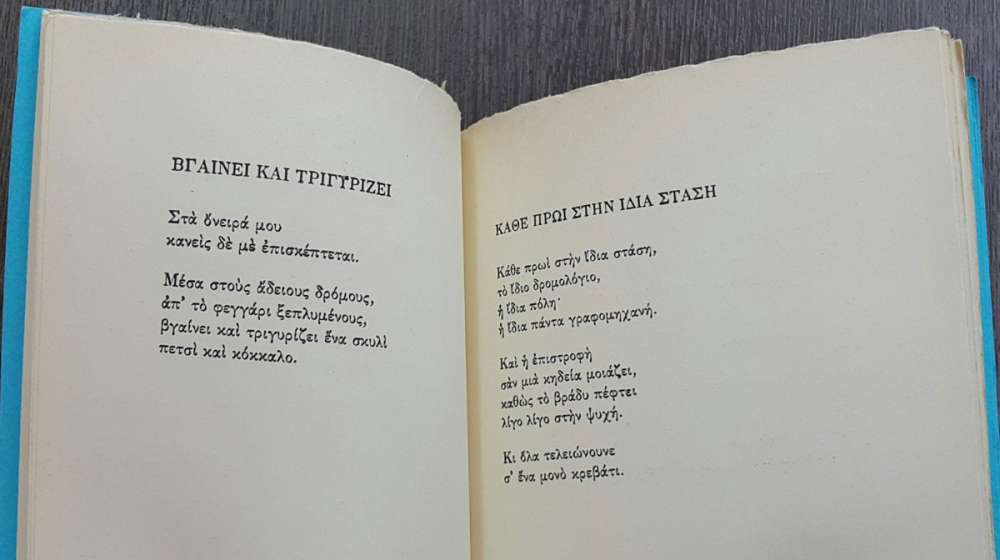 ΒΓΑΙΝΕΙ ΚΑΙ ΤΡΙΓΥΡΙΖΕΙ
Στὰ ὄνειρά μου
κανεὶς δὲ μὲ ἐπισκέπτεται.
Μέσα στοὺς ἄδειους δρόμους,
ἀπ' τὸ φεγγάρι ξεπλυμένους,
βγαίνει καὶ τριγυρίζει ἕνα σκυλὶ
πετσὶ καὶ κόκκαλο.
ΚΑΘΕ ΠΡΩΙ ΣΤΗΝ ΙΔΙΑ ΣΤΑΣΗ
Κάθε πρωὶ στὴν ἴδια στάση,
τὸ ἴδιο δρομολόγιο,
ἡ ἴδια πόλη·
ἡ ἴδια πάντα γραφομηχανή.
Καὶ ἡ ἐπιστροφὴ
σὰν μιὰ κηδεία μοιάζει,
καθὼς τὸ βράδυ πέφτει
λίγο λίγο στὴν ψυχή.
Κι ὅλα τελειώνουνε
σ' ἕνα μονὸ κρεβάτι.